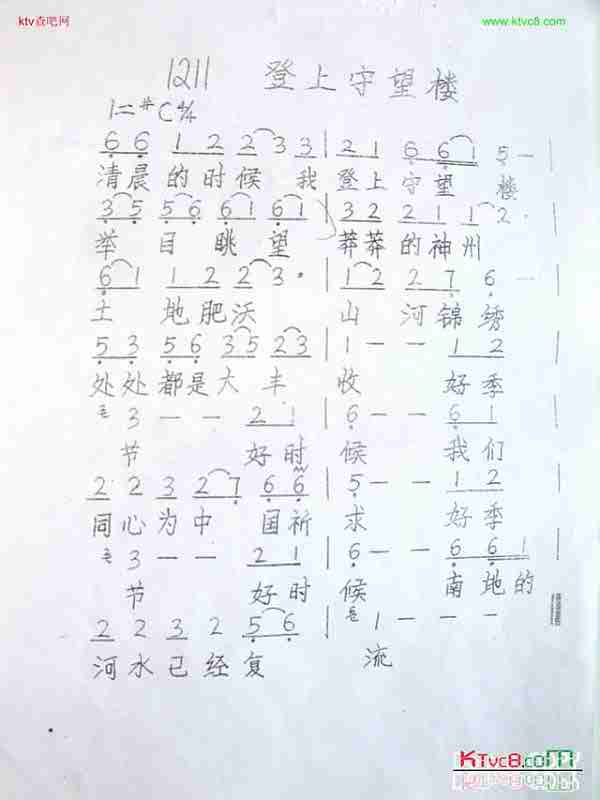 ktv查吧网
www.ktvc8.com
1211 登上守望楼
1=#C 4/4
6 6 1 2 2 3 3 | 2 1 6 6 1 5 - |
清晨的时候 我 登上守望 楼
3 5 5 6 6 1 6 1 | 3 2 2 1 1 2 - |
举 目 眺 望 莽莽的神州
6 1 1 2 2 3 · | 1 2 2 7 6 - |
土 地肥沃 山 河锦绣
5 3 5 6 3 5 2 3 | 1 - - 1 2 |
处处都是大 丰 收 好季
3 - - 2 1 | 6 - - 6 1 |
节 好时 候 我们
2 2 3 2 7 6 6 | 5 - - 1 2 |
同心为中 国祈 求 好季
3 - - 2 1 | 6 - - 6 6 1 |
节 好时 候 南地的
2 2 3 2 5 6 | 1 - - -
河水已经复 流
KTvc8.com